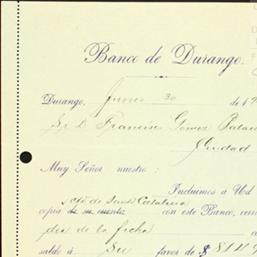 Banco de Durango.
Durango, Junio 30 de 19
Sr. D. Francisco Gómez Palac
Ciudad
Muy Señor nuestro:
Incluimos a Ud
scfé de Santa Catalina
copia de su cuenta con este Banco, cerr
de la fecha
saldo á Su favor de $